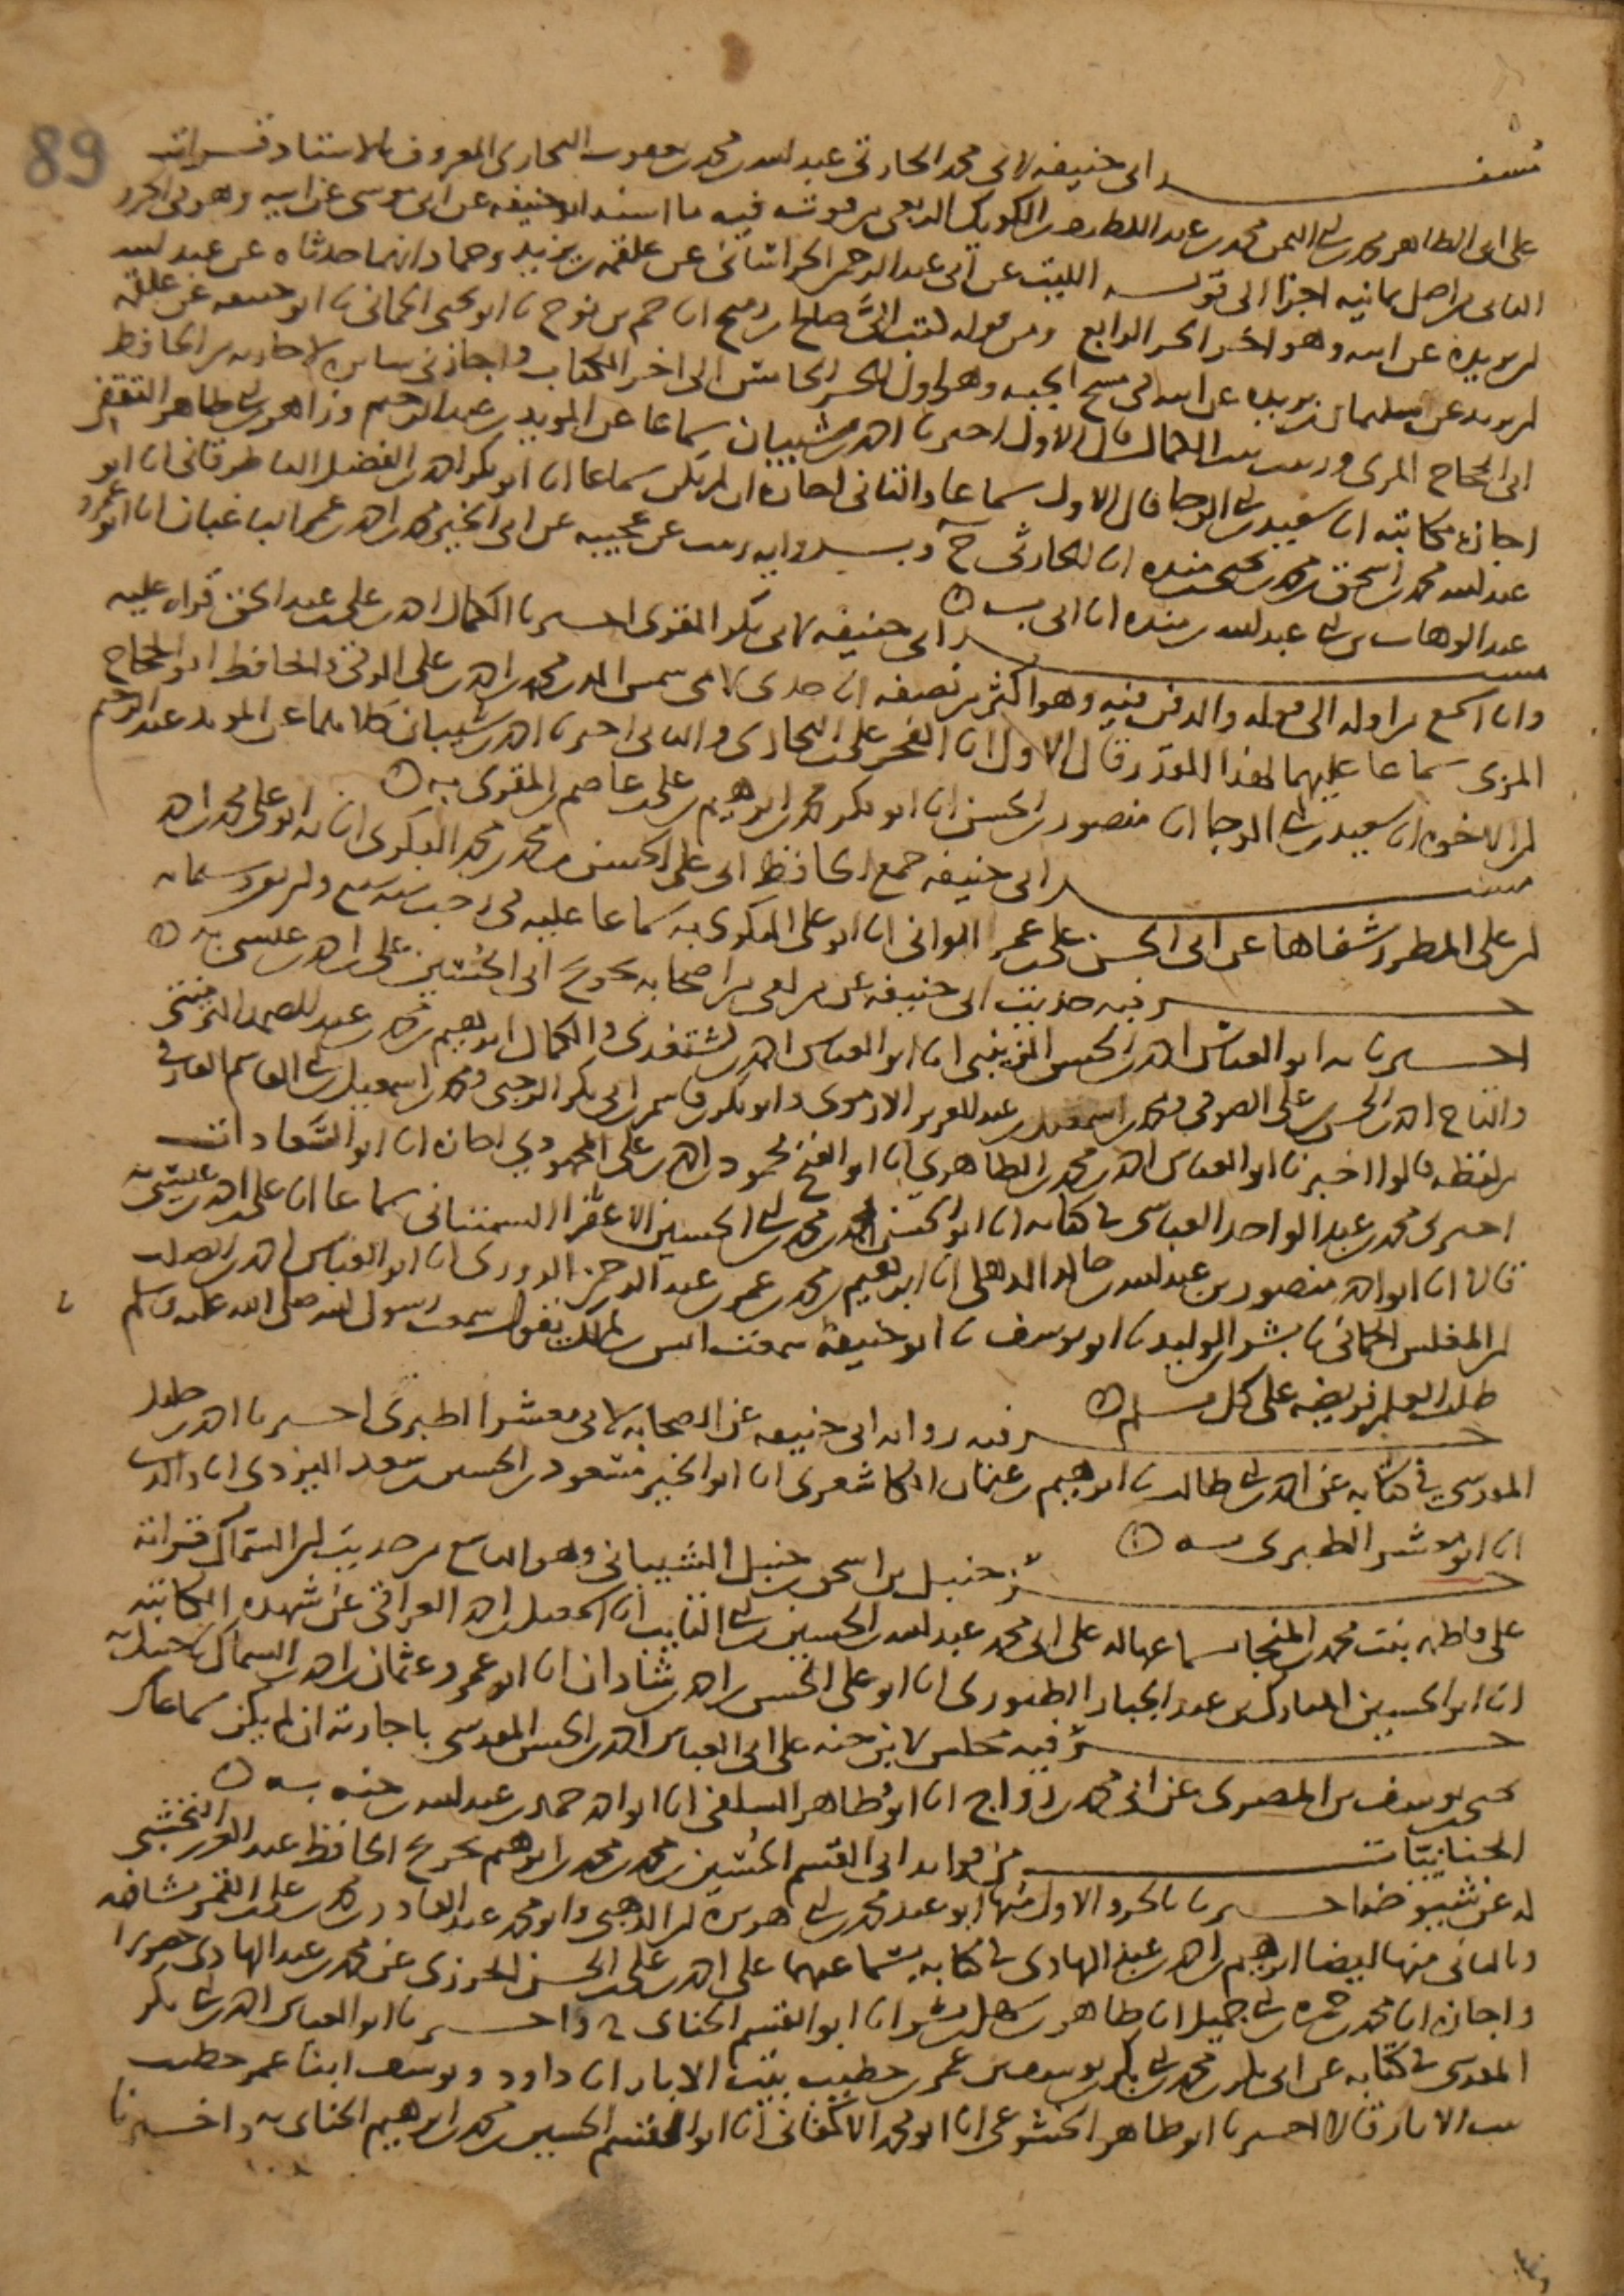 89
مسند ابى حنيفه لابى محمد الحارثى عبد الله بن محمد بن يعقوب البخارى المعروف بالاستاد قراته
على ابى الطاهر محمد بن ابى اليمن محمد بن عبد اللطيف بن الكويك الربعى فيه ما اسند ابو حنيفه عن ابى موسى عن ابيه وهو فى الجزو
الثانى من اصل ثمانيه اجزا الى قوله الليث عن ابى عبد الرحمن الخراسانى عن علقمه بن يزيد وحماد انهما حدثاه عن عبد الله
بن بريده عن ابيه وهو اخر الجز الرابع ومن قوله كتب الى صالح بن رميح انا حم بن نوح نا ابو يحيى الحمانى نا ابو حنيفه عن علقمه
بن مرثد عن سليمان بن بريده عن ابيه فى مسح الجبه وهو اول الجز الخامس الى اخر الكتاب واجازنى سايره لاجازته من الحافظ
ابى الحجاج المزى وزينب بنت الكمال قال الاول اخبرنا احمد بن شيبان سماعا عن المويد بن عبد الرحيم وزاهر بن ابى طاهر الثقفى
اجازه مكاتبه انا سعيد بن ابى الرجا قال الاول سماعا والثانى اجازه ان لم يكن سماعا انا ابو بكر احمد بن الفضل الباطرقانى انا ابو
عبد الله محمد بن اسحق بن محمد بن يحيى بن منده انا الحارثى ح وبروايه زينب عن عجيبه عن ابى الخير محمد بن احمد بن عمر الباغبان انا ابو عمرو
عبد الوهاب بن ابى عبد الله بن منده انا ابى به
مسند ابى حنيفه لابى بكر المقرى اخبرنا الكمال احمد بن على بن عبد الحق قراه عليه
وانا اسمع من اوله الى قوله والدفن فيه وهو اكثر من نصفه انا جدى لامى شمس الدين محمد بن احمد بن على الرقى والحافظ ابو الحجاج
المزى سماعا عليهما لهذا القدر قال الاول انا الفخر على بن البخارى والثانى اخبرنا احمد بن شيبان كلاهما عن المويد عبد الرحيم
بن الاخوه انا سعيد بن ابى الرجا انا منصور بن الحسين انا ابو بكر محمد بن ابراهيم بن على بن عاصم بن المقرى به
مسند ابى حنيفه جمع الحافظ ابى على الحسن بن محمد بن محمد البكرى انا به ابو على محمد بن احمد
بن على المطرز شفاها عن ابى الحسن على بن عمر الوانى انا ابو على البكرى به سماعا عليه فى رجب سنه سبع
جزء فيه حديث ابى حنيفه عن من لقى من اصحابه تخريج ابى الحسين على بن احمد بن عيسى
اخبرنا به ابو العباس احمد بن الحسن الزينبى انا ابو العباس احمد بن كشتغدى والكمال ابراهيم بن محمد بن عبد الصمد التزمنتى
والتاج احمد بن الحسن بن على الصوفى ومحمد بن اسمعيل بن عبد العزيز الارموى وابو بكر بن قاسم بن ابى بكر الرحبى ومحمد بن اسمعيل بن ابى القاسم الفارقى
من لفظه قالوا اخبرنا ابو العباس احمد بن محمد الظاهرى انا ابو الفتح محمود بن احمد بن على المحمودى اجازه انا ابو السعادات
اخبرنى محمد بن عبد الواحد العباسى فى كتابه انا ابو الحسن احمد بن محمد بن ابى الحسين السمنانى سماعا انا على بن احمد بن عيسى نا
قالا انا ابو احمد منصور بن عبد الله بن خالد الذهلى انا ابراهيم بن محمد بن عمر بن عبد الرحمن الدورى انا ابو العباس احمد بن الصلت
بن المغلس الحمانى نا بشر بن الوليد نا ابو يوسف نا ابو حنيفه سمعت انس بن مالك يقول سمعت رسول الله صلى الله عليه وسلم
طلب العلم فريضه على كل مسلم
جزء فيه روايه ابى حنيفه عن الصحابه لابى معشر الطبرى اخبرنا احمد بن خليل
المقدسى فى كتابه عن احمد بن ابى طالب نا ابراهيم بن عثمان الكاشغرى انا ابو الخير مسعود بن الحسين بن سعد اليزدى انا والدى
انا ابو معشر الطبرى به
جزء حنبل بن اسحق بن حنبل الشيبانى وهو التاسع من حديث ابن السماك قراته
على فاطمه بنت محمد بن المنجا بسماعها له على ابى محمد عبد الله بن الحسين بن ابى التايب انا اسمعيل بن احمد العراقى عن شهده الكاتبه
انا ابو الحسين المبارك بن عبد الجبار الطيورى انا ابو على الحسن بن احمد بن شاذان انا ابو عمرو عثمان بن احمد بن السماك نا حنبل به
جزء فيه مجلس لابن حنه على ابى العباس احمد بن الحسن المقدسى باجازته ان لم يكن سماعا من
يحيى بن يوسف بن المصرى عن ابى محمد بن رواج انا ابو طاهر السلفى انا ابو احمد حمد بن عبد الله بن حنه به
الحنائيات من فوايد ابى القسم الحسين بن محمد بن ابراهيم تخريج الحافظ عبد العزيز النخشبى
له عن شيوخه اخبرنا بالجزو الاول منها ابو عبد محمد بن ابى هريره بن الذهبى وابو محمد عبد القادر بن محمد بن على بن القمر مشافهه
وبالثانى منها ايضا ابراهيم بن احمد بن عبد الهادى فى كتابه بسماعهما على احمد بن على بن الحسن الجزرى عن محمد بن عبد الهادى حضورا
واجازه انا محمد بن حمزه بن ابى جميل انا طاهر بن سهل بن بشر انا ابو القسم الحنائى ح واخبرنا ابو العباس احمد بن ابى بكر
المقدسى فى كتابه عن ابى بكر محمد بن ابى بكر بن يوسف بن عمر خطيب بيت الابار انا داود ويوسف ابنا عمر خطيب
بيت الابار قالا اخبرنا ابو طاهر الخشوعى انا ابو محمد الاكفانى انا ابو القسم الحسين بن محمد بن ابراهيم الحنائى به واخبرنا